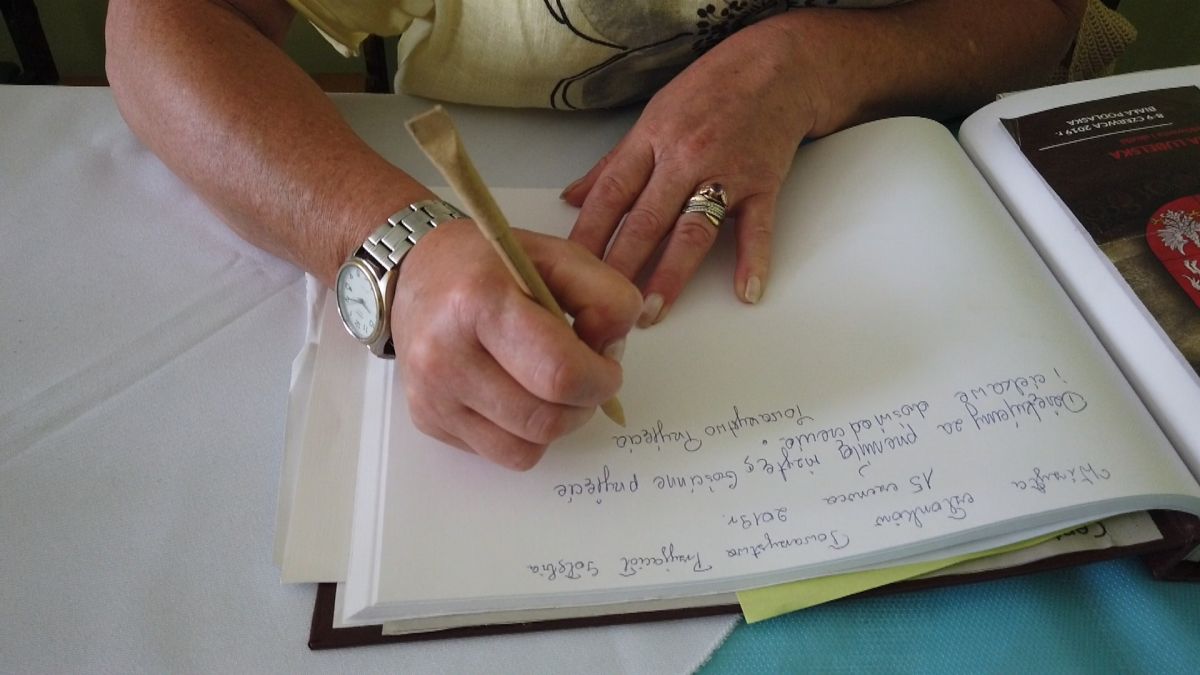 Wizyta członków Towarzystwa Przyjaciół Gołębia
15 czerwca 2019 r.
Dziękujemy za przemiłą wizytę, Gościnne przyjęcie
i ciekawe doświadczenia.
Towarzystwo
A LUBELSKA
8-9 CZERWCA 2019 r.
BIAŁA PODLASKA